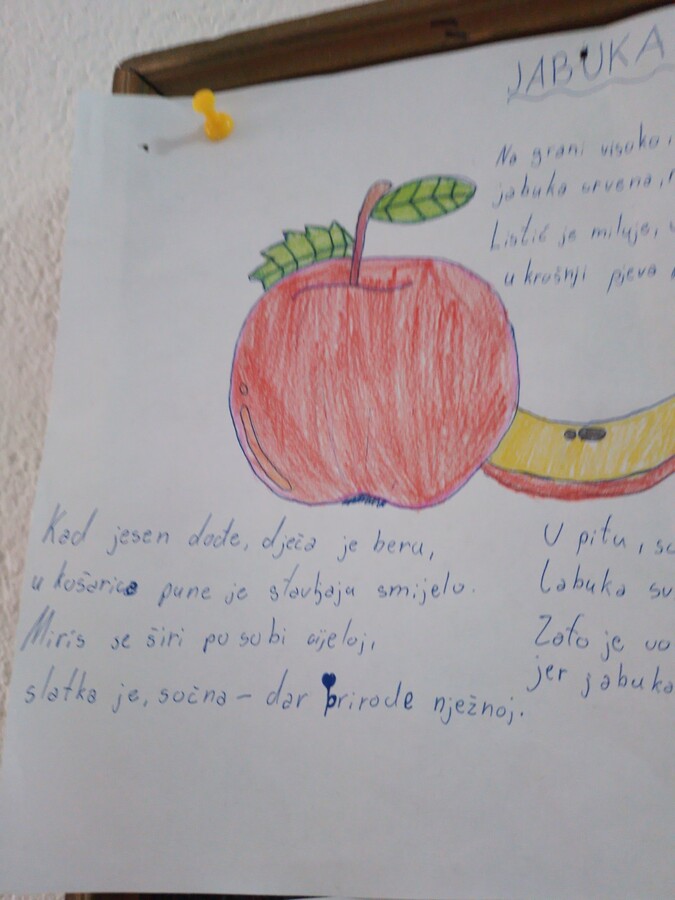 JABUKA
Na grani visoko
jabuka srvena,
Listić je miluje,
u krošnji pjeva
Kad jesen dođe, djeca je beru,
u košarice pune je stavljaju smijelo.
Miris se širi po sobi cijeloj,
slatka je, sočna - dar prirode nježnoj.
U pitu,
Labuka
Zato je
jer jabuka